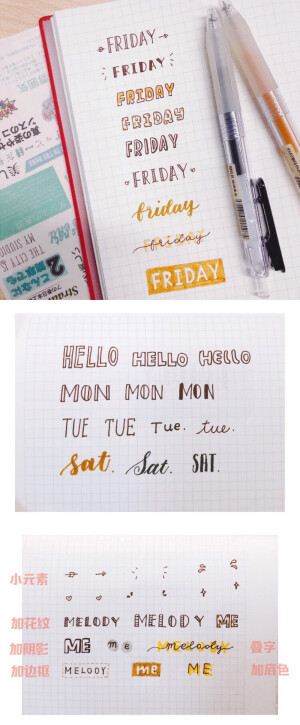 FRIDAY
FRIDAY
FRIDAY
FRIDAY
FRIDAY
FRIDAY
friday
friday
FRIDAY
THE CITY IS
MY STUDIO
2
HELLO HELLO HELLO
MON MON MON
TUE TUE Tue. tue.
Sat. Sat. SAT.
小元素
加花纹 MELODY MELODY ME
加阴影 ME me melody 叠字
加边框 MELODY me ME 加底色